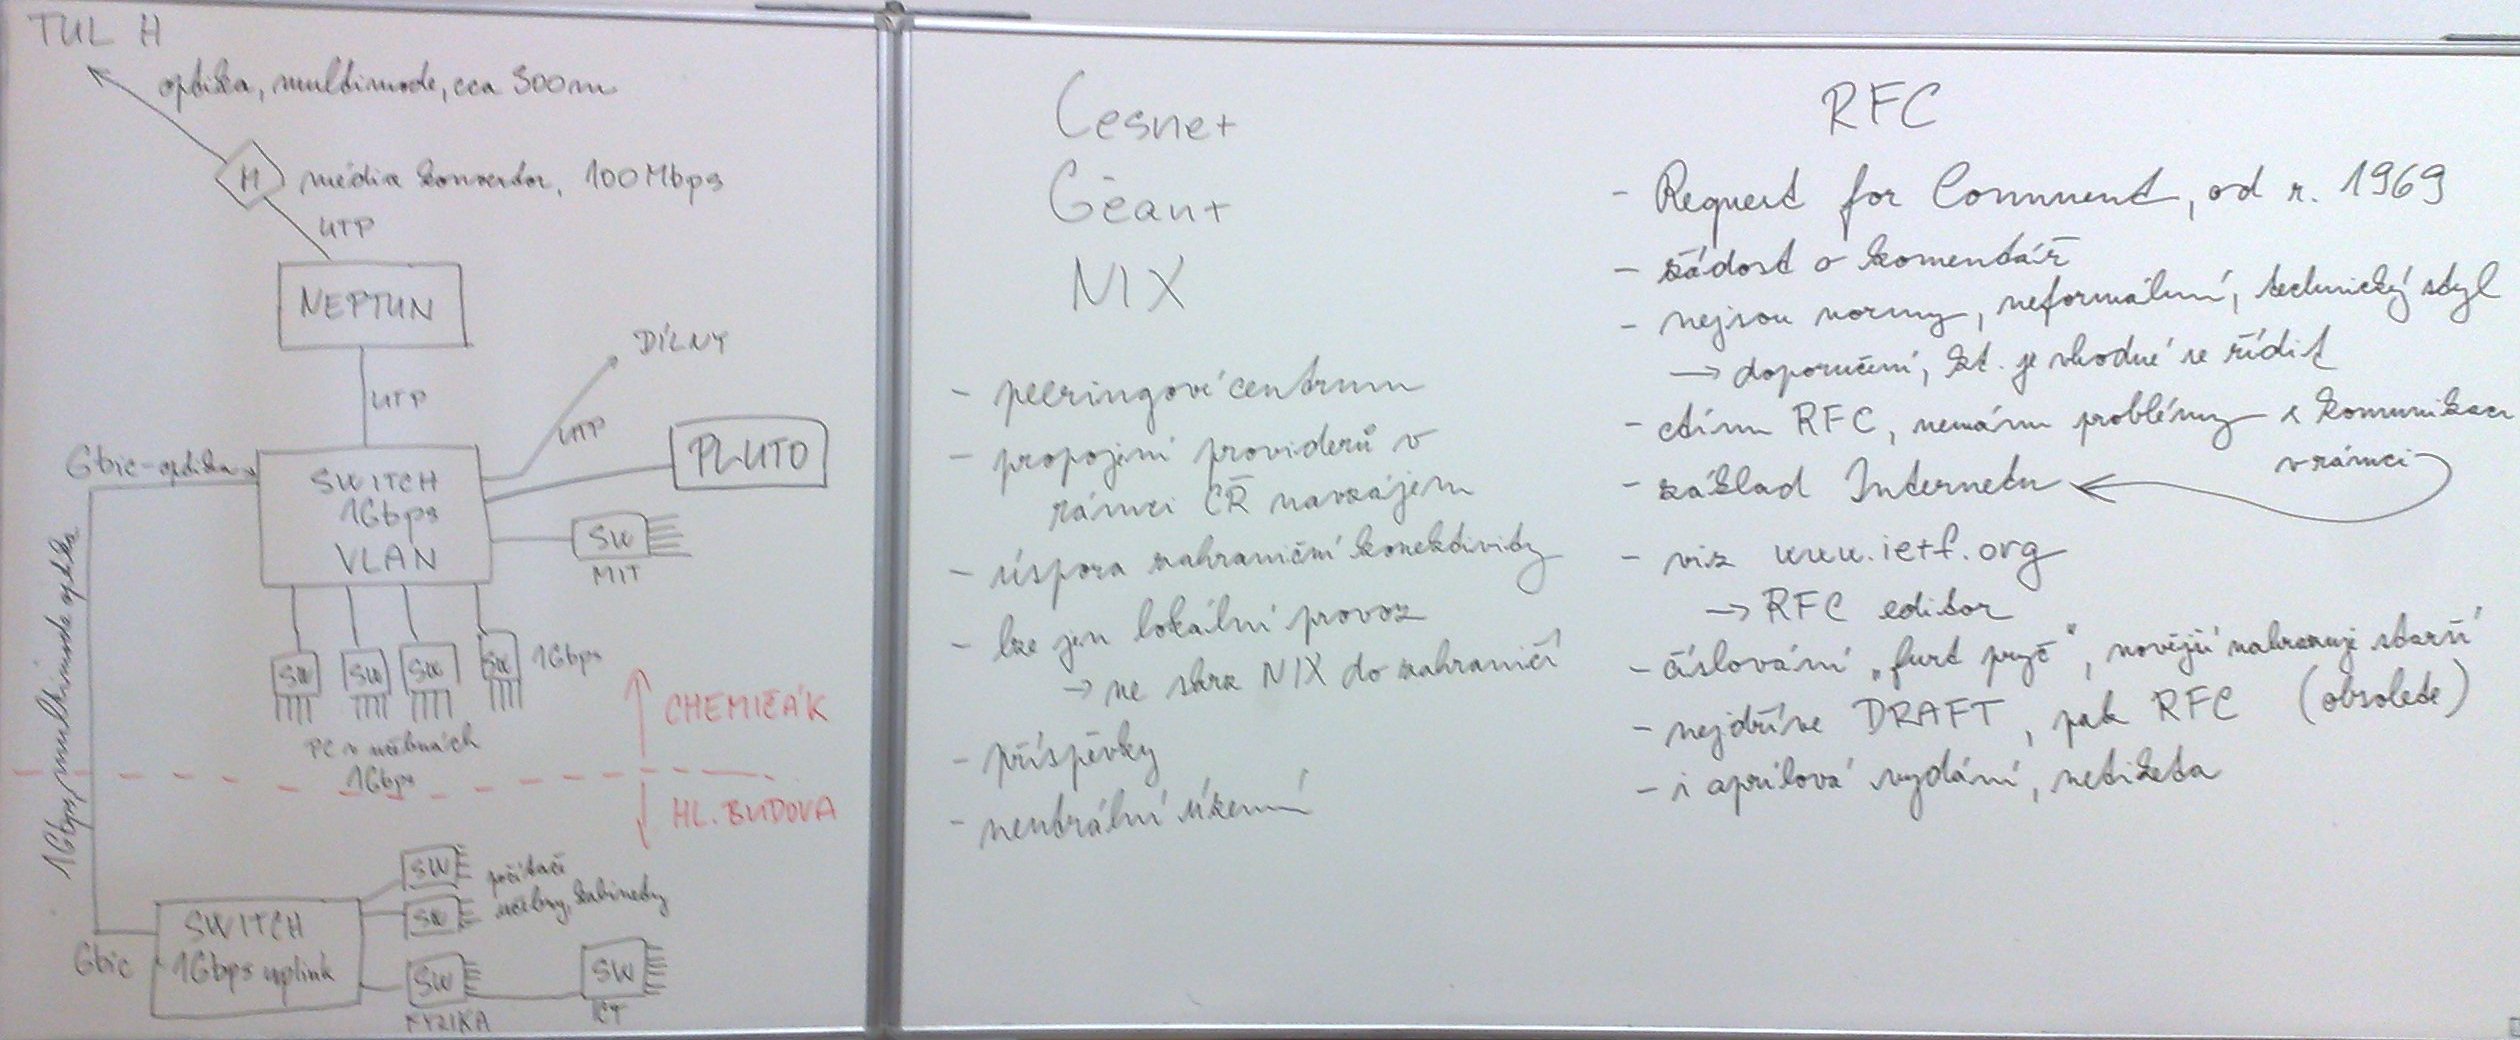 TUL H
optika, multimode, cca 300m
M média konvertor, 100Mbps
UTP
NEPTUN
UTP
DÍLNY
UTP
PLUTO
Gbic-optika
SWITCH
1Gbps
VLAN
SW
MIT
1Gbps multimode optika
SW SW SW SW 1Gbps
PC v učebnách
1Gbps
CHEMIČÁK
HL. BUDOVA
SW
SW
počítači
učebny, kabinety
SWITCH
1Gbps uplink
Gbic
SW
FYZIKA
SW
ICT
Cesnet
Géant
NIX
- peeringové centrum
- propojení providerů v
rámci ČR navzájem
- úspora zahraniční konektivity
- lze jen lokální provoz
→ ne skrz NIX do zahraničí
- příspěvky
- neutrální území
RFC
- Request for Comment, od r. 1969
- žádost o komentář
- nejsou normy, neformální, technický styl
→ doporučení, kt. je vhodné se řídit
- ctím RFC, nemám problémy s komunikací
v rámci
- základ Internetu
- viz www.ietf.org
→ RFC editor
- číslování „furt pryč“, novější nahrazuje starší
(obsolete)
- nejdříve DRAFT, pak RFC
- i aprílová vydání, netiketa